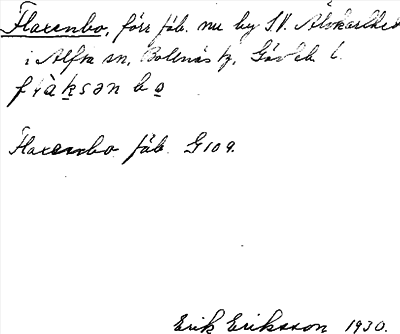 Flaxenbo, förr fäb. nu by SV. Älvkarlhed
i Alfta sn, Bollnäs tg, Gävleb. l.
Flaxenbo fäb. G109.
Erik Eriksson 1930.